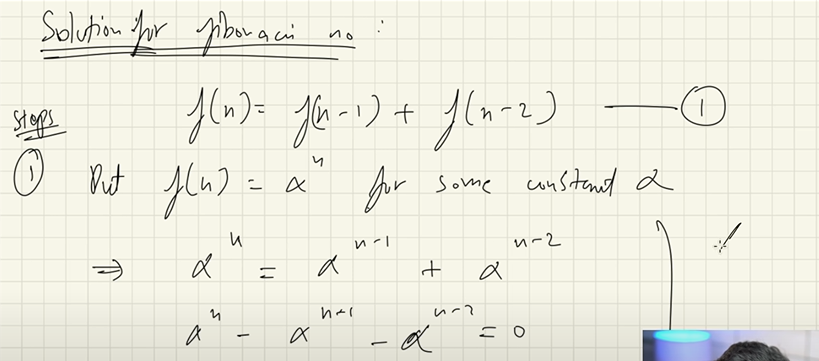 Solution for fibonacii no :
f(n) = f(n-1) + f(n-2) ——— ①
steps
① Put f(n) = αⁿ for some constant α
⇒ αⁿ = αⁿ⁻¹ + αⁿ⁻²
αⁿ - αⁿ⁻¹ - αⁿ⁻² = 0